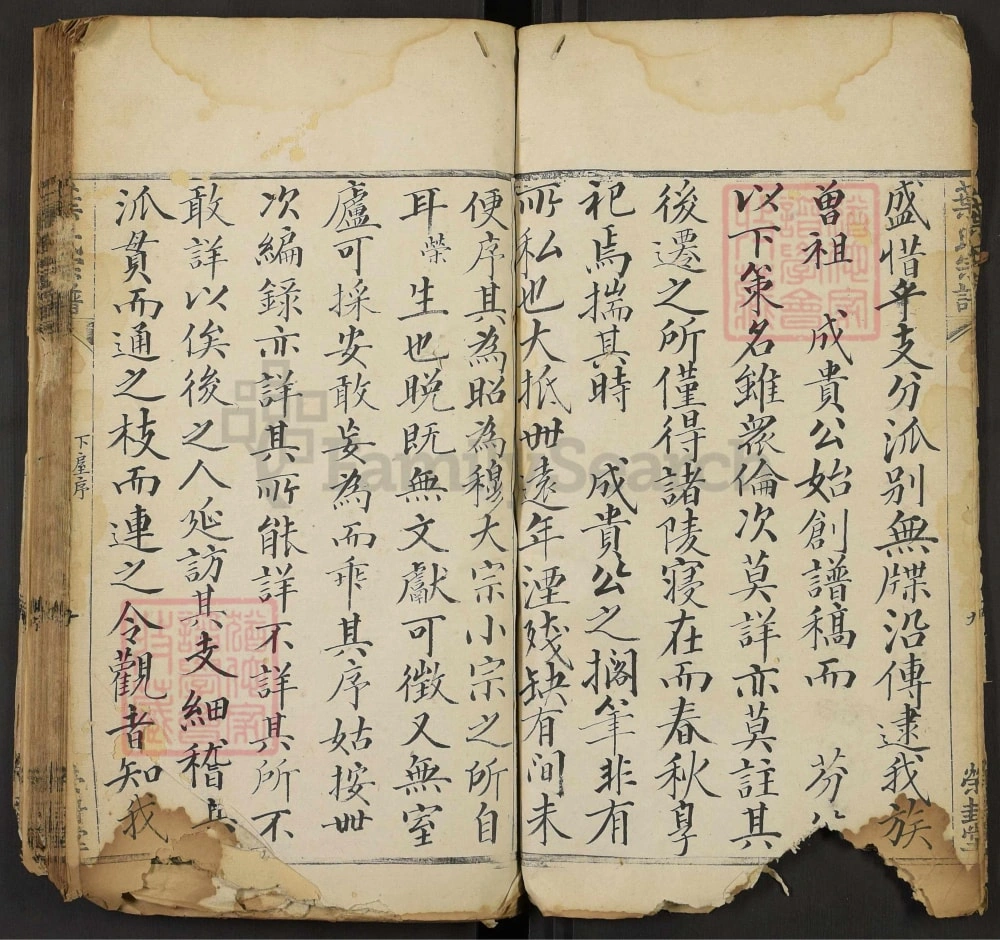 盛惜乎支分派別無牒沿傳逮我族
曾祖 成貴公始創譜稿而 芬
以下策名雖衆倫次莫詳亦莫註其
後遷之所僅得諸陵寢在而春秋享
祀焉揣其時 成貴公之擱筆非有
所私也大抵世遠年湮殘缺有间未
便序其為昭為穆大宗小宗之所自
耳榮生也晚既無文獻可徵又無室
廬可採安敢妄為而乖其序姑按世
次編錄亦詳其所能詳不詳其所不
敢詳以俟後之人延訪其支細稽其
派貫而通之枝而連之令觀者知我
下屋序
榮封堂
FamilySearch